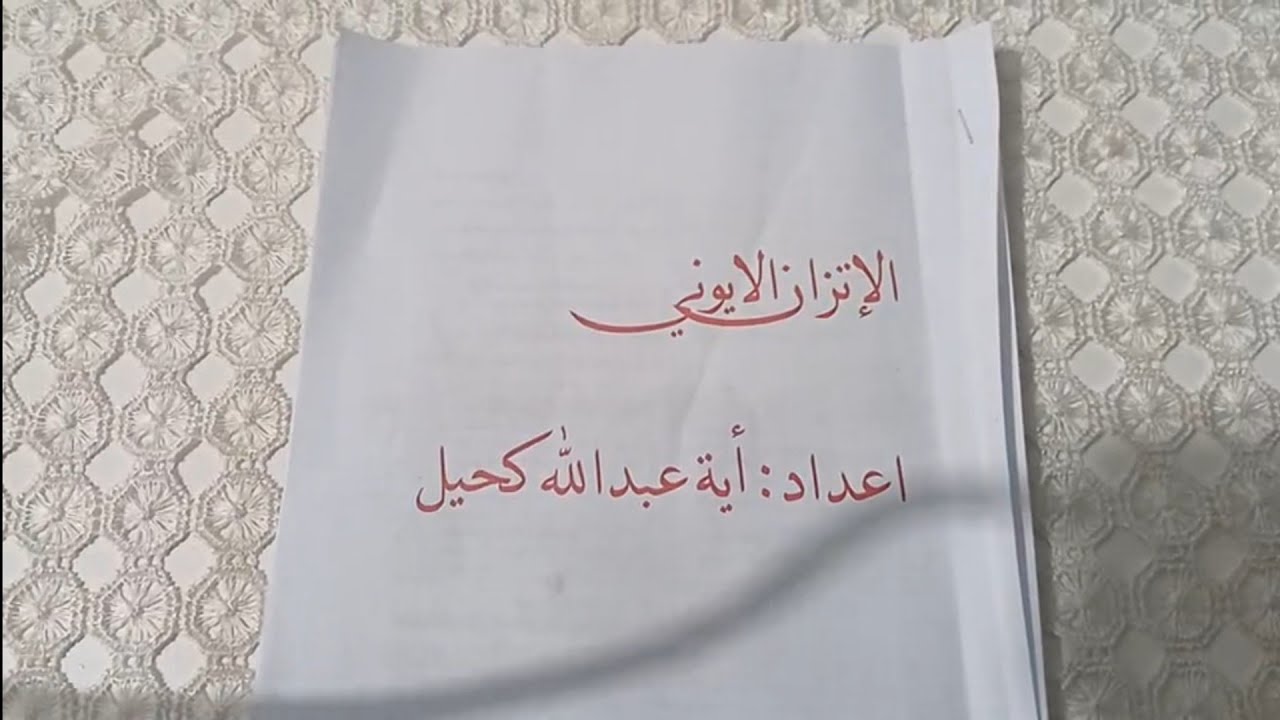 الإتزان الايوني
اعداد : أية عبدالله كحيل